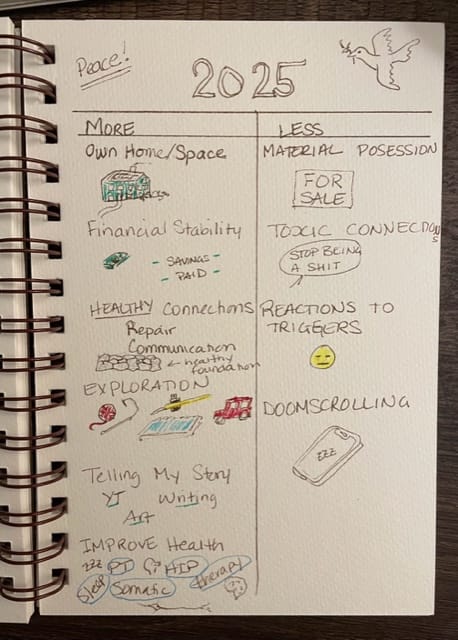 Peace!
2025
MORE
Own Home/Space
Financial Stability
- SAVINGS -
- PAID -
HEALTHY Connections
Repair
Communication
← healthy
foundation
EXPLORATION
Telling My Story
YT Writing
Art
IMPROVE Health
zzz PT HIP therapy
Sleep Somatic
LESS
MATERIAL POSESSION
FOR
SALE
TOXIC CONNECTIONS
STOP BEING
A SHIT
REACTIONS TO
TRIGGERS
DOOMSCROLLING
zzz